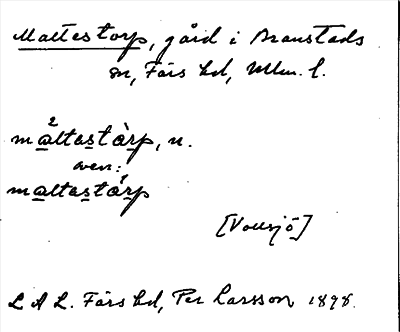 Maltestorp, gård i Branstads
sn, Färs hd, Mlm. l.
måltastàrp, n.
även:
maltastárp
[Vollsjö]
L A L. Färs hd, Per Larsson 1898.